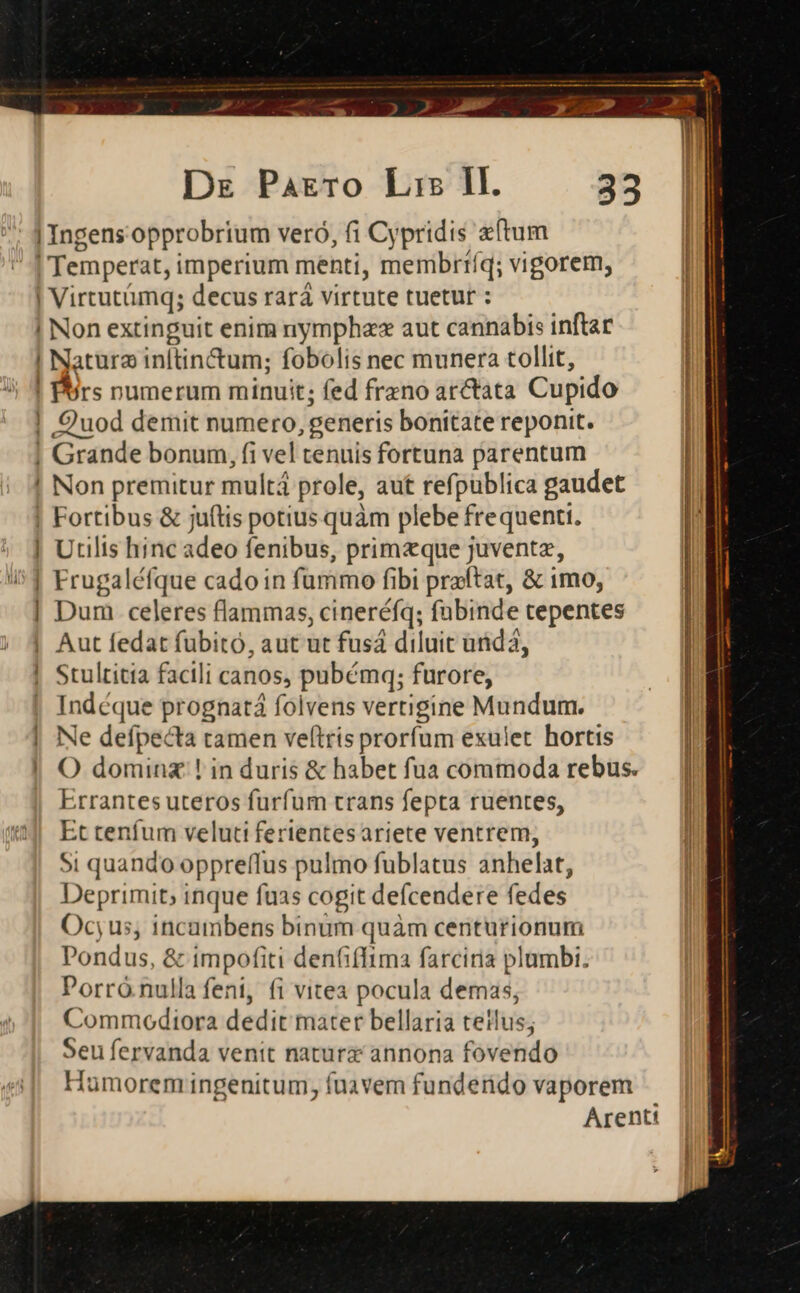 De Paeto Lib II. 33
Ingens opprobrium veró, ſi Cypridis æſtum
Temperat, imperium menti, membriſq; vigorem,
Virtutúmq; decus rará virtute tuetur :
Non extinguit enim nymphææ aut cannabis inſtar
Naturæ inſtinctum; ſobolis nec munera tollit,
Fórs numerum minuit; ſed fræno arctata Cupido
Quod demit numero, generis bonitate reponit.
Grande bonum, ſi vel tenuis fortuna parentum
Non premitur multá prole, aut reſpublica gaudet
Fortibus & juſtis potius quàm plebe frequenti.
Utilis hinc adeo ſenibus, primæque juventæ,
Frugaléſque cado in ſummo ſibi præſtat, & imo,
Dum celeres flammas, cineréſq; ſubinde tepentes
Aut ſedat ſubitó, aut ut fusá diluit undá,
Stultitia facili canos, pubémq; furore,
Indéque prognatá ſolvens vertigine Mundum.
Ne deſpecta tamen veſtris prorſum exulet hortis
O dominæ ! in duris & habet ſua commoda rebus.
Errantes uteros ſurſum trans ſepta ruentes,
Et tenſum veluti ferientes ariete ventrem,
Si quando oppreſſus pulmo ſublatus anhelat,
Deprimit, inque ſuas cogit deſcendere ſedes
Ocyus, incumbens binúm quàm centurionum
Pondus, & impoſiti denſiſſima farcina plumbi.
Porró nulla ſeni, ſi vitea pocula demas,
Commodiora dedit mater bellaria tellus,
Seu ſervanda venit naturæ annona fovendo
Humorem ingenitum, ſuavem fundendo vaporem
Arenti